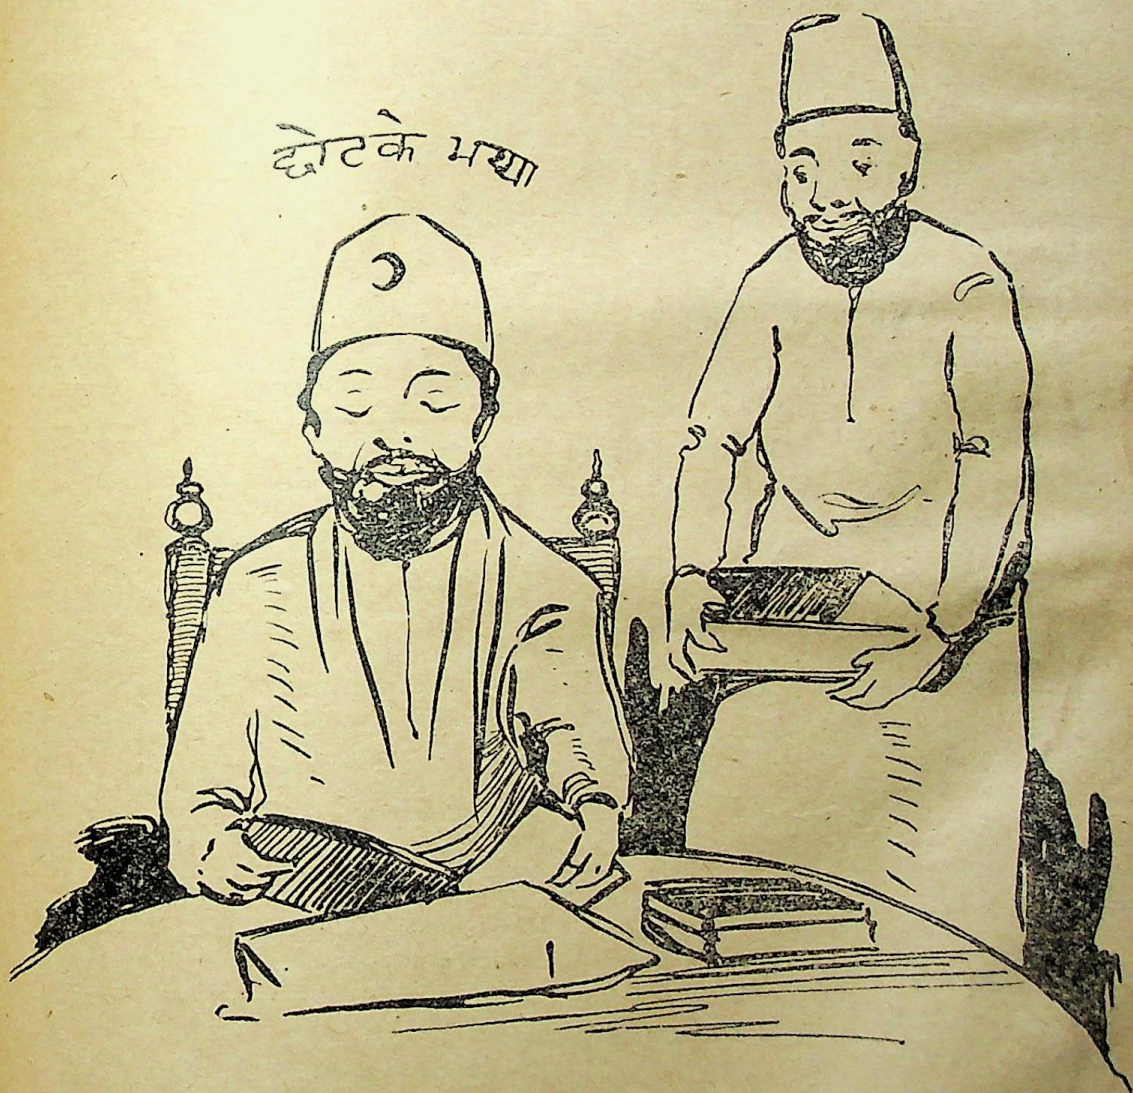 छोटके भय्या